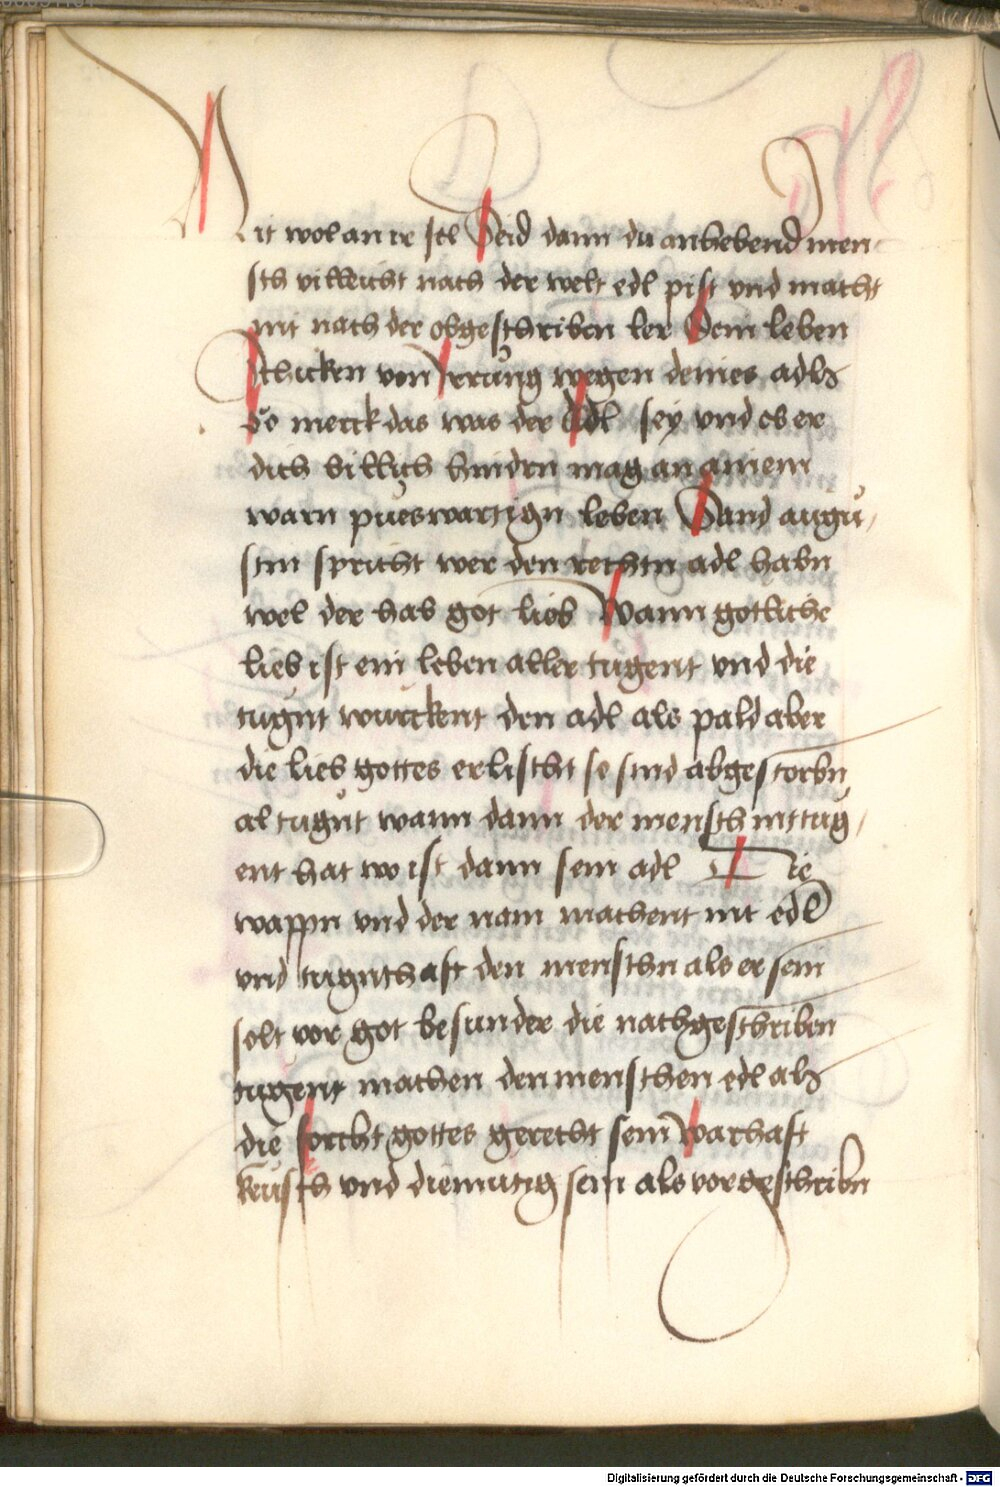 Nit wol an ir stl Seid dann du anhebend men
sch villeicht nach der welt edl pist und macht
nit nach der obgeschriben ler Dein leben
Schicken von Irrung wegen deines adls
So merck das was der Adl sey und ob er
dich billich hindrn mag an ainem
warn pueswartign leben Sand augu/
stin spricht wer den rechtn adl habn
wel der hab got lieb Wann gotliche
lieb ist ein leben aller tugent und die
tugnt wurckent den adl als pald aber
die lieb gottes erlischt so sind abgestorbn
al tugnt wann dann der mensch nit tug/
ent hat wo ist dann sein adl Die
wappn und der nam machent nit edl
und tugnthaft den menschn als er sein
solt vor got besunder die nachgeschriben
tugent machen den menschen edl als
die forcht gottes gerecht sein warhaft
keusch und diemutig sein als vorgeschribn
Digitalisierung gefördert durch die Deutsche Forschungsgemeinschaft - DFG